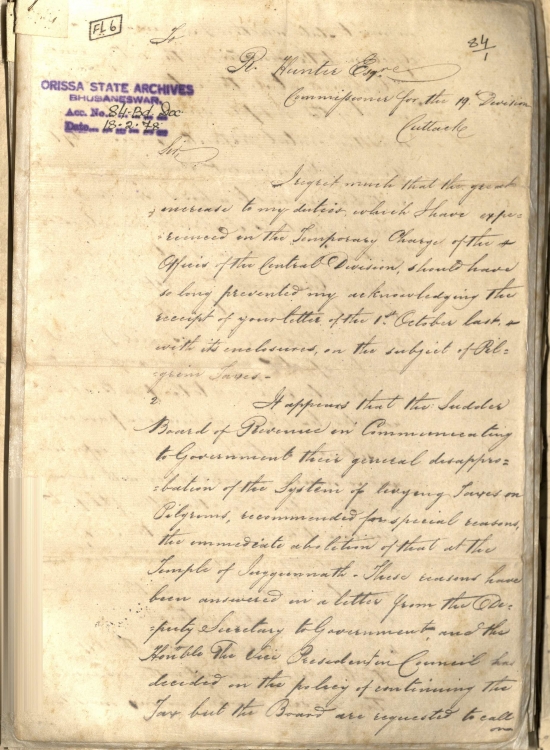 FL6
84/1
To
R. Hunter Esqre
Commissioner for the 19 Division
Cuttack
ORISSA STATE ARCHIVES
BHUBANESWAR.
Acc. No. 84-Bd. Doc
Date 18-2-78
Sir,
I regret much that the great
increase to my duties, which I have expe=
=rienced in the Temporary Charge of the
Offices of the Central Division, should have
so long prevented my acknowledging the
receipt of your letter of the 1st October last,
with its enclosures, on the subject of Pil=
=grim Taxes.-
2 It appears that the Sudder
Board of Revenue in Communicating
to Government their general disappro=
=bation of the System of levying Taxes on
Pilgrims, recommended for special reasons,
the immediate abolition of that at the
Temple of Juggunnath - These reasons have
been answered in a letter from the De=
=puty Secretary to Government and the
Honble The Vice President in Council has
decided on the policy of continuing the
Tax but the Board are requested to call
on